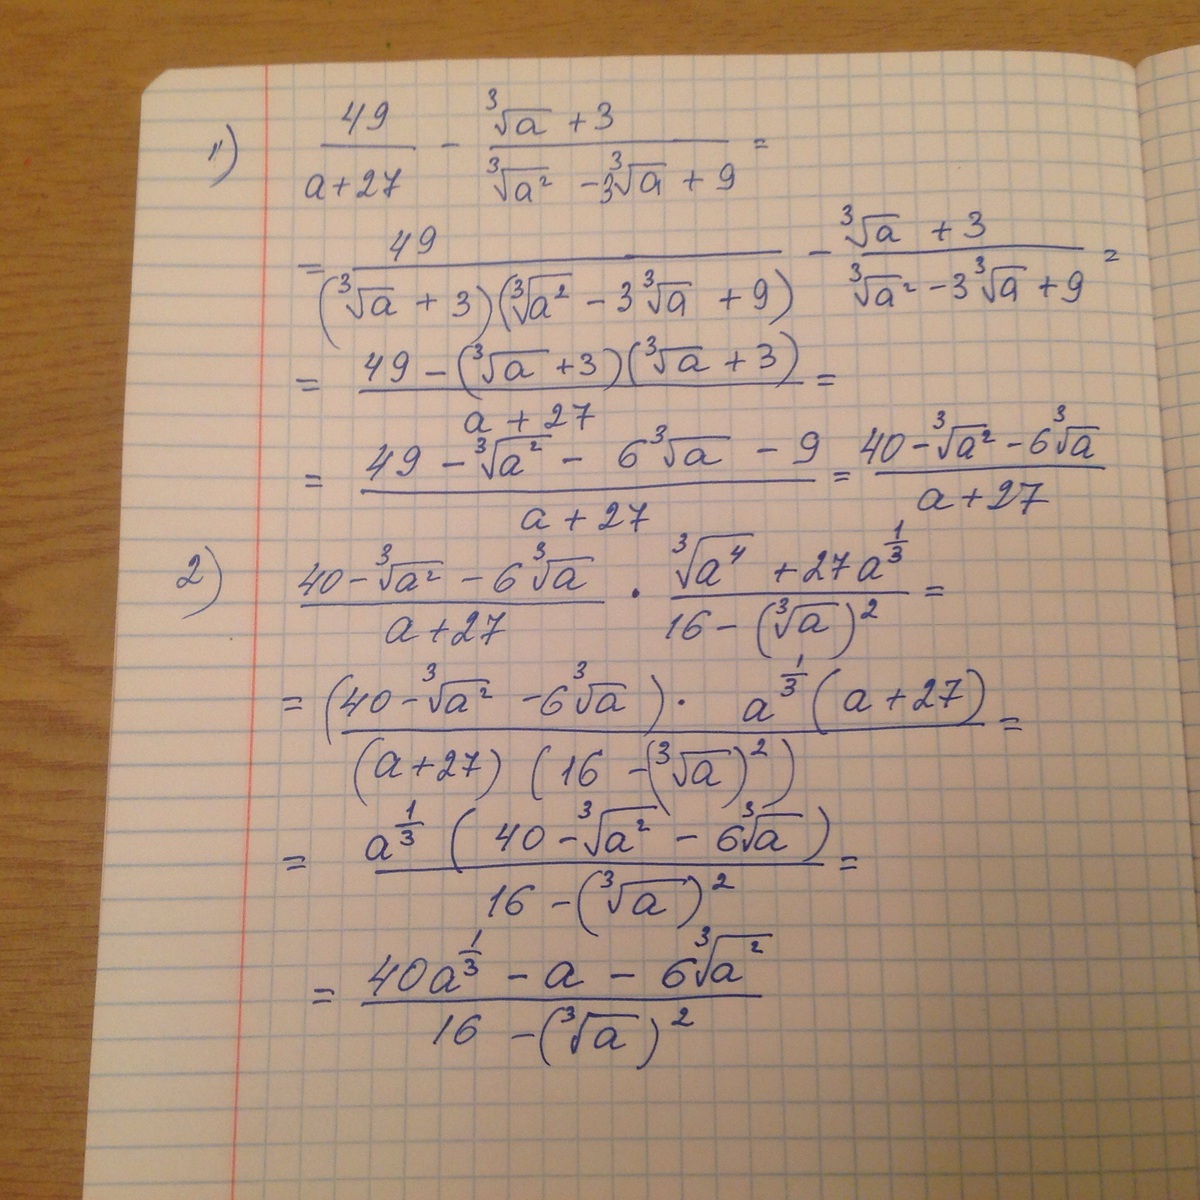 1) 49/(a+27) - (∛a + 3)/(∛a² - 3∛a + 9) =
= 49/((∛a + 3)(∛a² - 3∛a + 9)) - (∛a + 3)/(∛a² - 3∛a + 9) =
= (49 - (∛a + 3)(∛a + 3))/(a + 27) =
= (49 - ∛a² - 6∛a - 9)/(a + 27) = (40 - ∛a² - 6∛a)/(a + 27)
2) (40 - ∛a² - 6∛a)/(a + 27) · (∛a⁴ + 27a^(1/3))/(16 - (∛a)²) =
= ((40 - ∛a² - 6∛a) · a^(1/3)(a + 27))/((a + 27)(16 - (∛a)²)) =
= (a^(1/3)(40 - ∛a² - 6∛a))/(16 - (∛a)²) =
= (40a^(1/3) - a - 6∛a²)/(16 - (∛a)²)